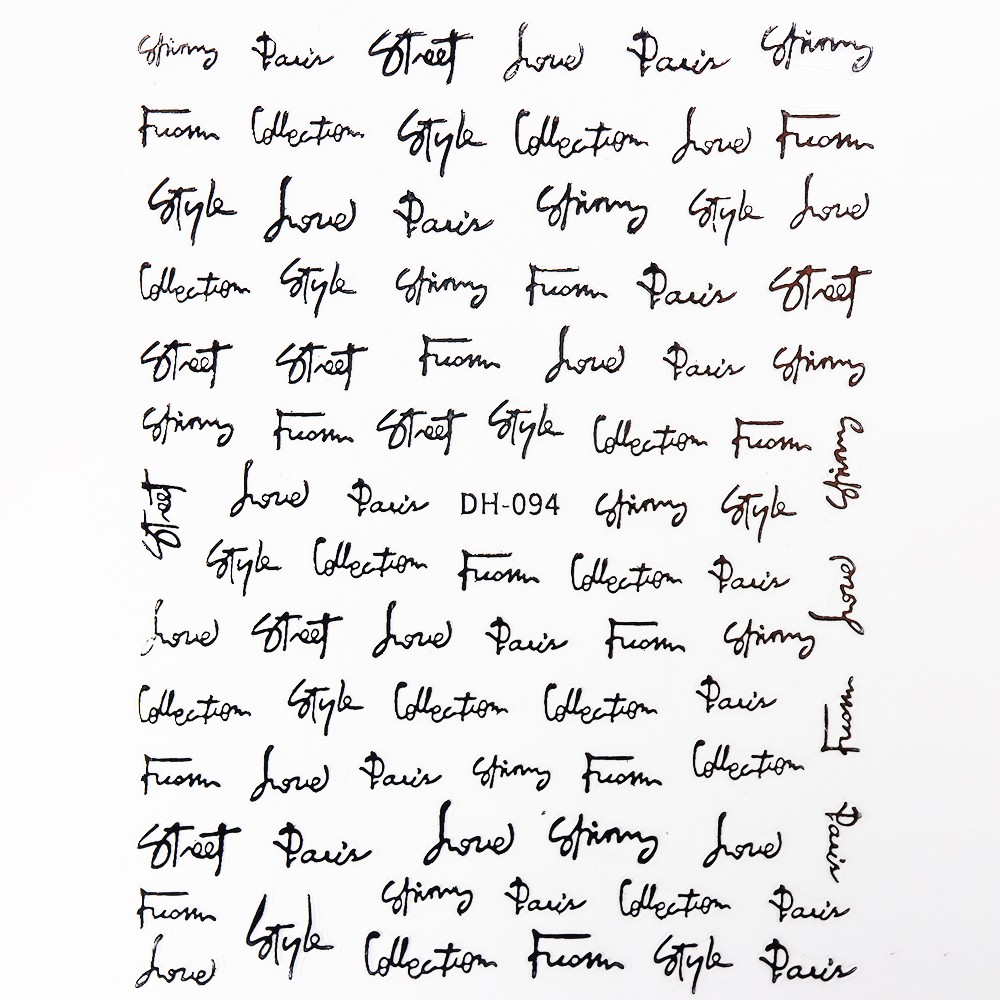 Spirny Paris Street Love Paris Spirny
Fuosm Collection Style Collection Love Fuosm
Style Love Paris Spirny Style Love
Collection Style Spirny Fuosm Paris Street
Street Street Fuosm Love Paris Spirny
Spirny Fuosm Street Style Collection Fuosm Spirny
Street Love Paris DH-094 Spirny Style
Style Collection Fuosm Collection Paris Love
Love Street Love Paris Fuosm Spirny
Collection Style Collection Collection Paris Fuosm
Fuosm Love Paris Spirny Fuosm Collection
Street Paris Love Spirny Love Paris
Fuosm Spirny Paris Collection Paris
Love Style Collection Fuosm Style Paris